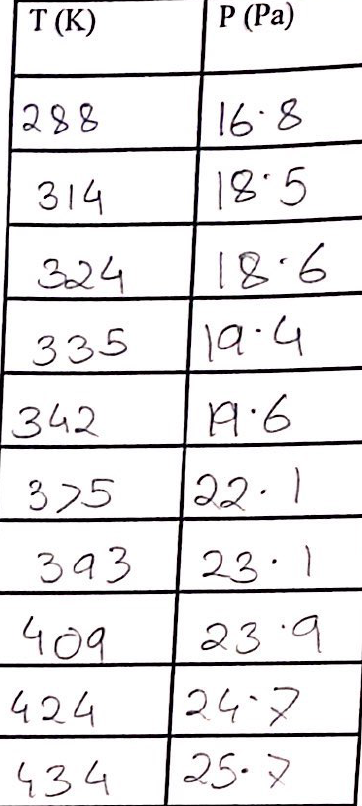 T (K) P (Pa)
288 16.8
314 18.5
324 18.6
335 19.4
342 19.6
375 22.1
393 23.1
409 23.9
424 24.7
434 25.7